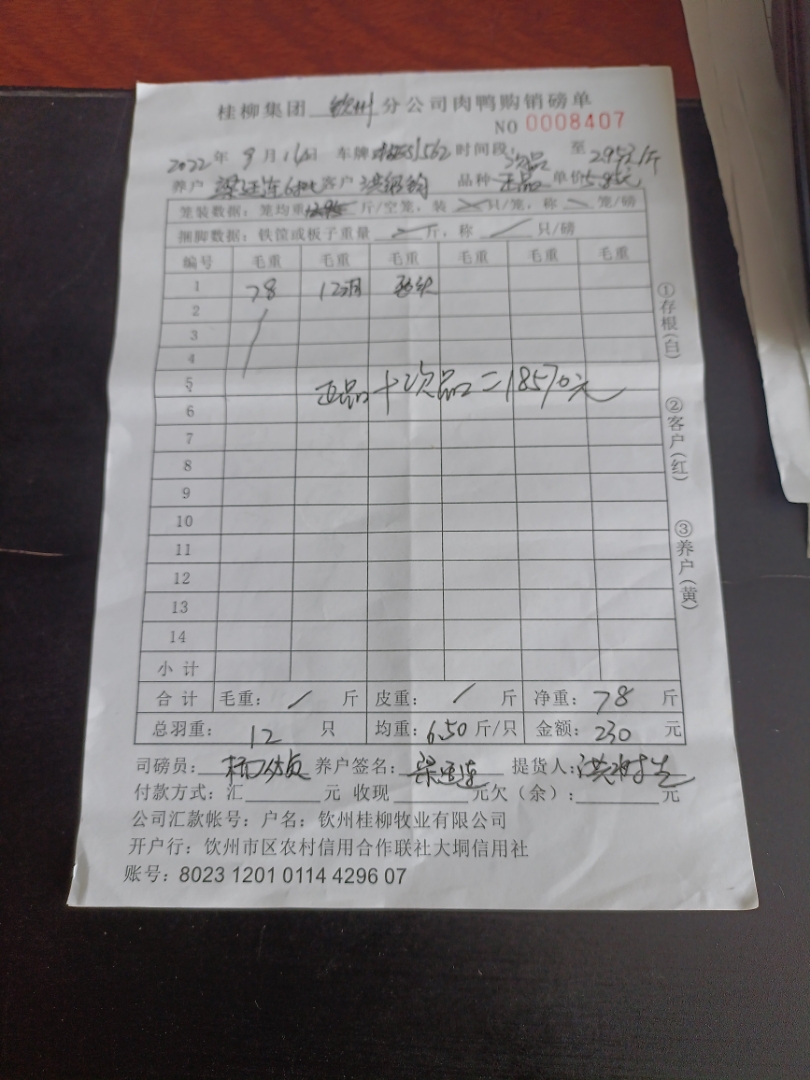 桂柳集团 钦州 分公司肉鸭购销磅单
NO 0008407
2022年 9月16日 车牌 1562 时间段: 次品 至 2.95元/斤
养户 梁廷连 客户 洪绍钧 品种 正品 单价 5.85元
笼装数据: 笼均重 斤/空笼, 装 只/笼, 称 笼/磅
捆脚数据: 铁筐或板子重量 斤, 称 只/磅
编号 毛重 毛重 毛重 毛重 毛重 毛重
1 78 12羽
2
3
4
5
正品+次品=18570元
6
7
8
9
10
11
12
13
14
小计
合计 毛重: / 斤 皮重: / 斤 净重: 78 斤
总羽重: 12 只 均重: 6.50 斤/只 金额: 230 元
司磅员: 养户签名: 梁廷连 提货人: 洪
付款方式: 汇 元 收现 元欠(余): 元
公司汇款帐号: 户名: 钦州桂柳牧业有限公司
开户行: 钦州市区农村信用合作联社大垌信用社
账号: 8023 1201 0114 4296 07
①存根(白)
②客户(红)
③养户(黄)